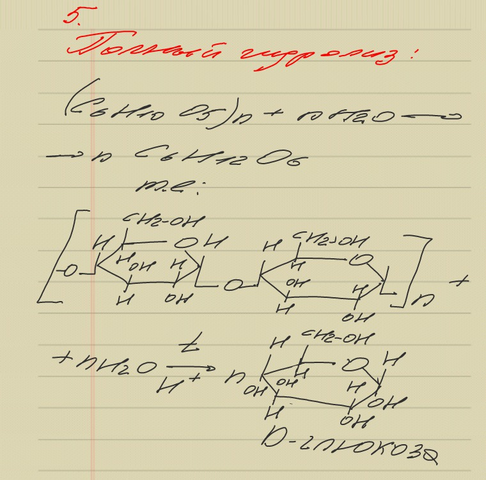 5.
Полный гидролиз:
(C6H10O5)n + nH2O →
→ n C6H12O6
т.е:
CH2-OH CH2-OH
H O H H O
H H H H
[-O OH H O OH H ]n +
H OH H OH
+ nH2O t → H+ n
CH2-OH
H O H
H
OH OH H OH
H OH
D-глюкоза